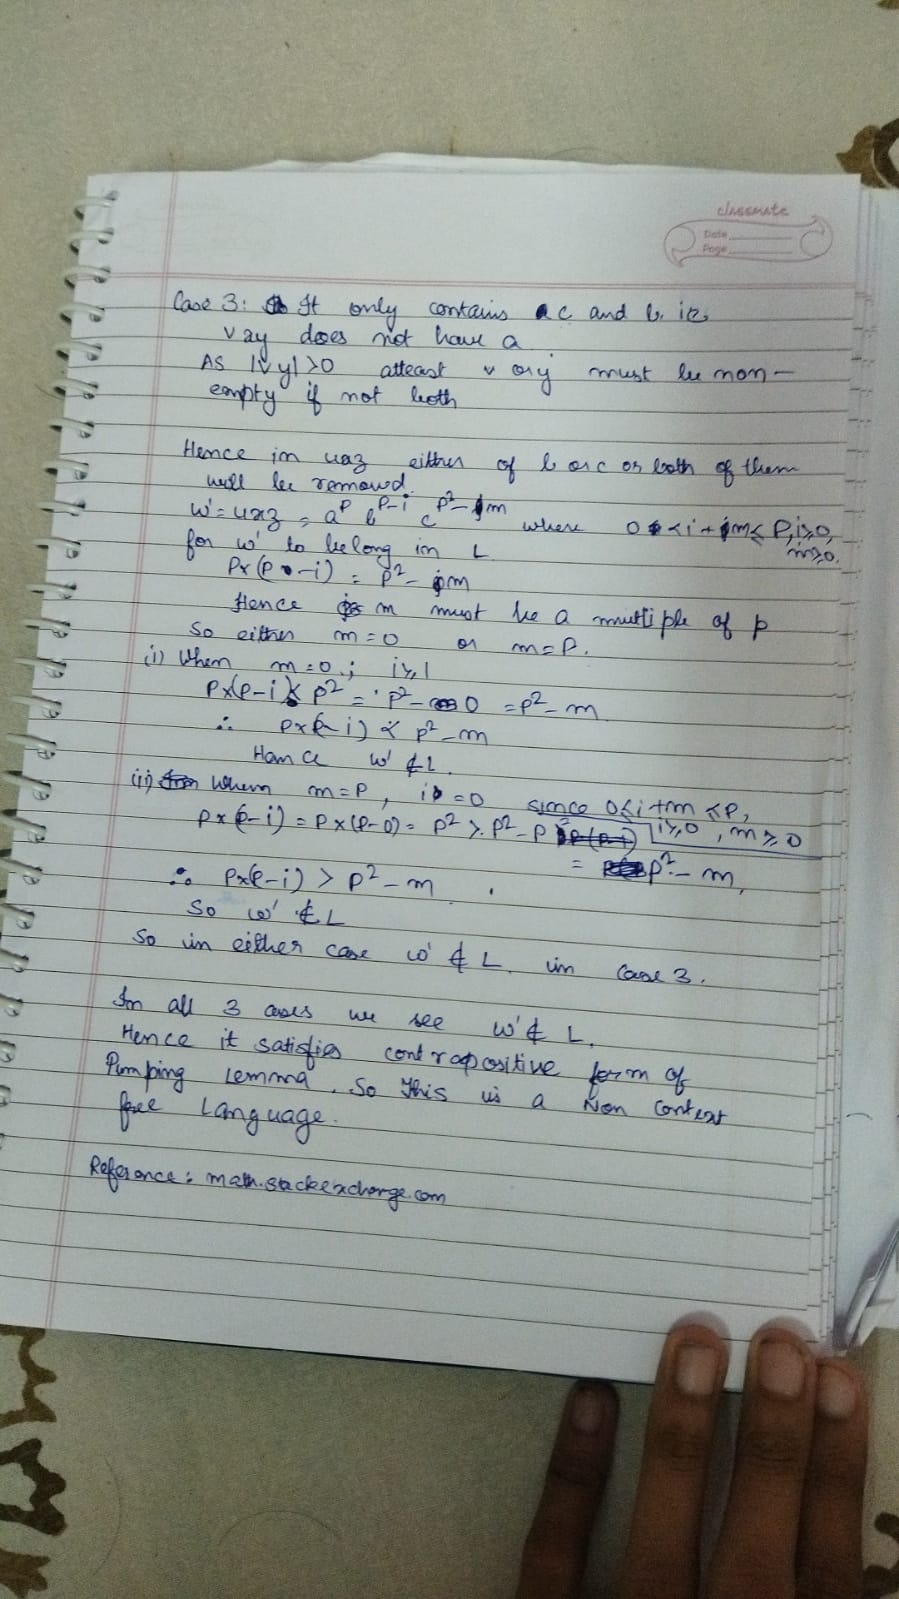 classmate
Date
Page
Case 3: It only contains c and b. ie,
vxy does not have a
As |vy|>0 atleast v or y must be non-
empty if not both
Hence in uxz either of b or c or both of them
will be removed.
w' = uxz = a^p b^(p-i) c^(p²-m) where 0 < i+m ≤ p, i≥0,
m≥0.
for w' to belong in L
p×(p-i) = p²-m
Hence m must be a multiple of p
So either m=0 or m=p.
(i) When m=0; i≥1
p×(p-i) < p² = p²-0 = p²-m
∴ p×(p-i) < p²-m
Hence w' ∉ L.
(ii) When m=p, i=0 since 0<i+m≤p,
p×(p-i) = p×(p-0) = p² > p²-p i≥0, m≥0
= p²-m,
∴ p×(p-i) > p²-m.
So w' ∉ L
So in either case w' ∉ L in Case 3.
In all 3 cases we see w' ∉ L.
Hence it satisfies contrapositive form of
Pumping Lemma. So this is a Non Context
free Language.
Reference: math.stackexchange.com